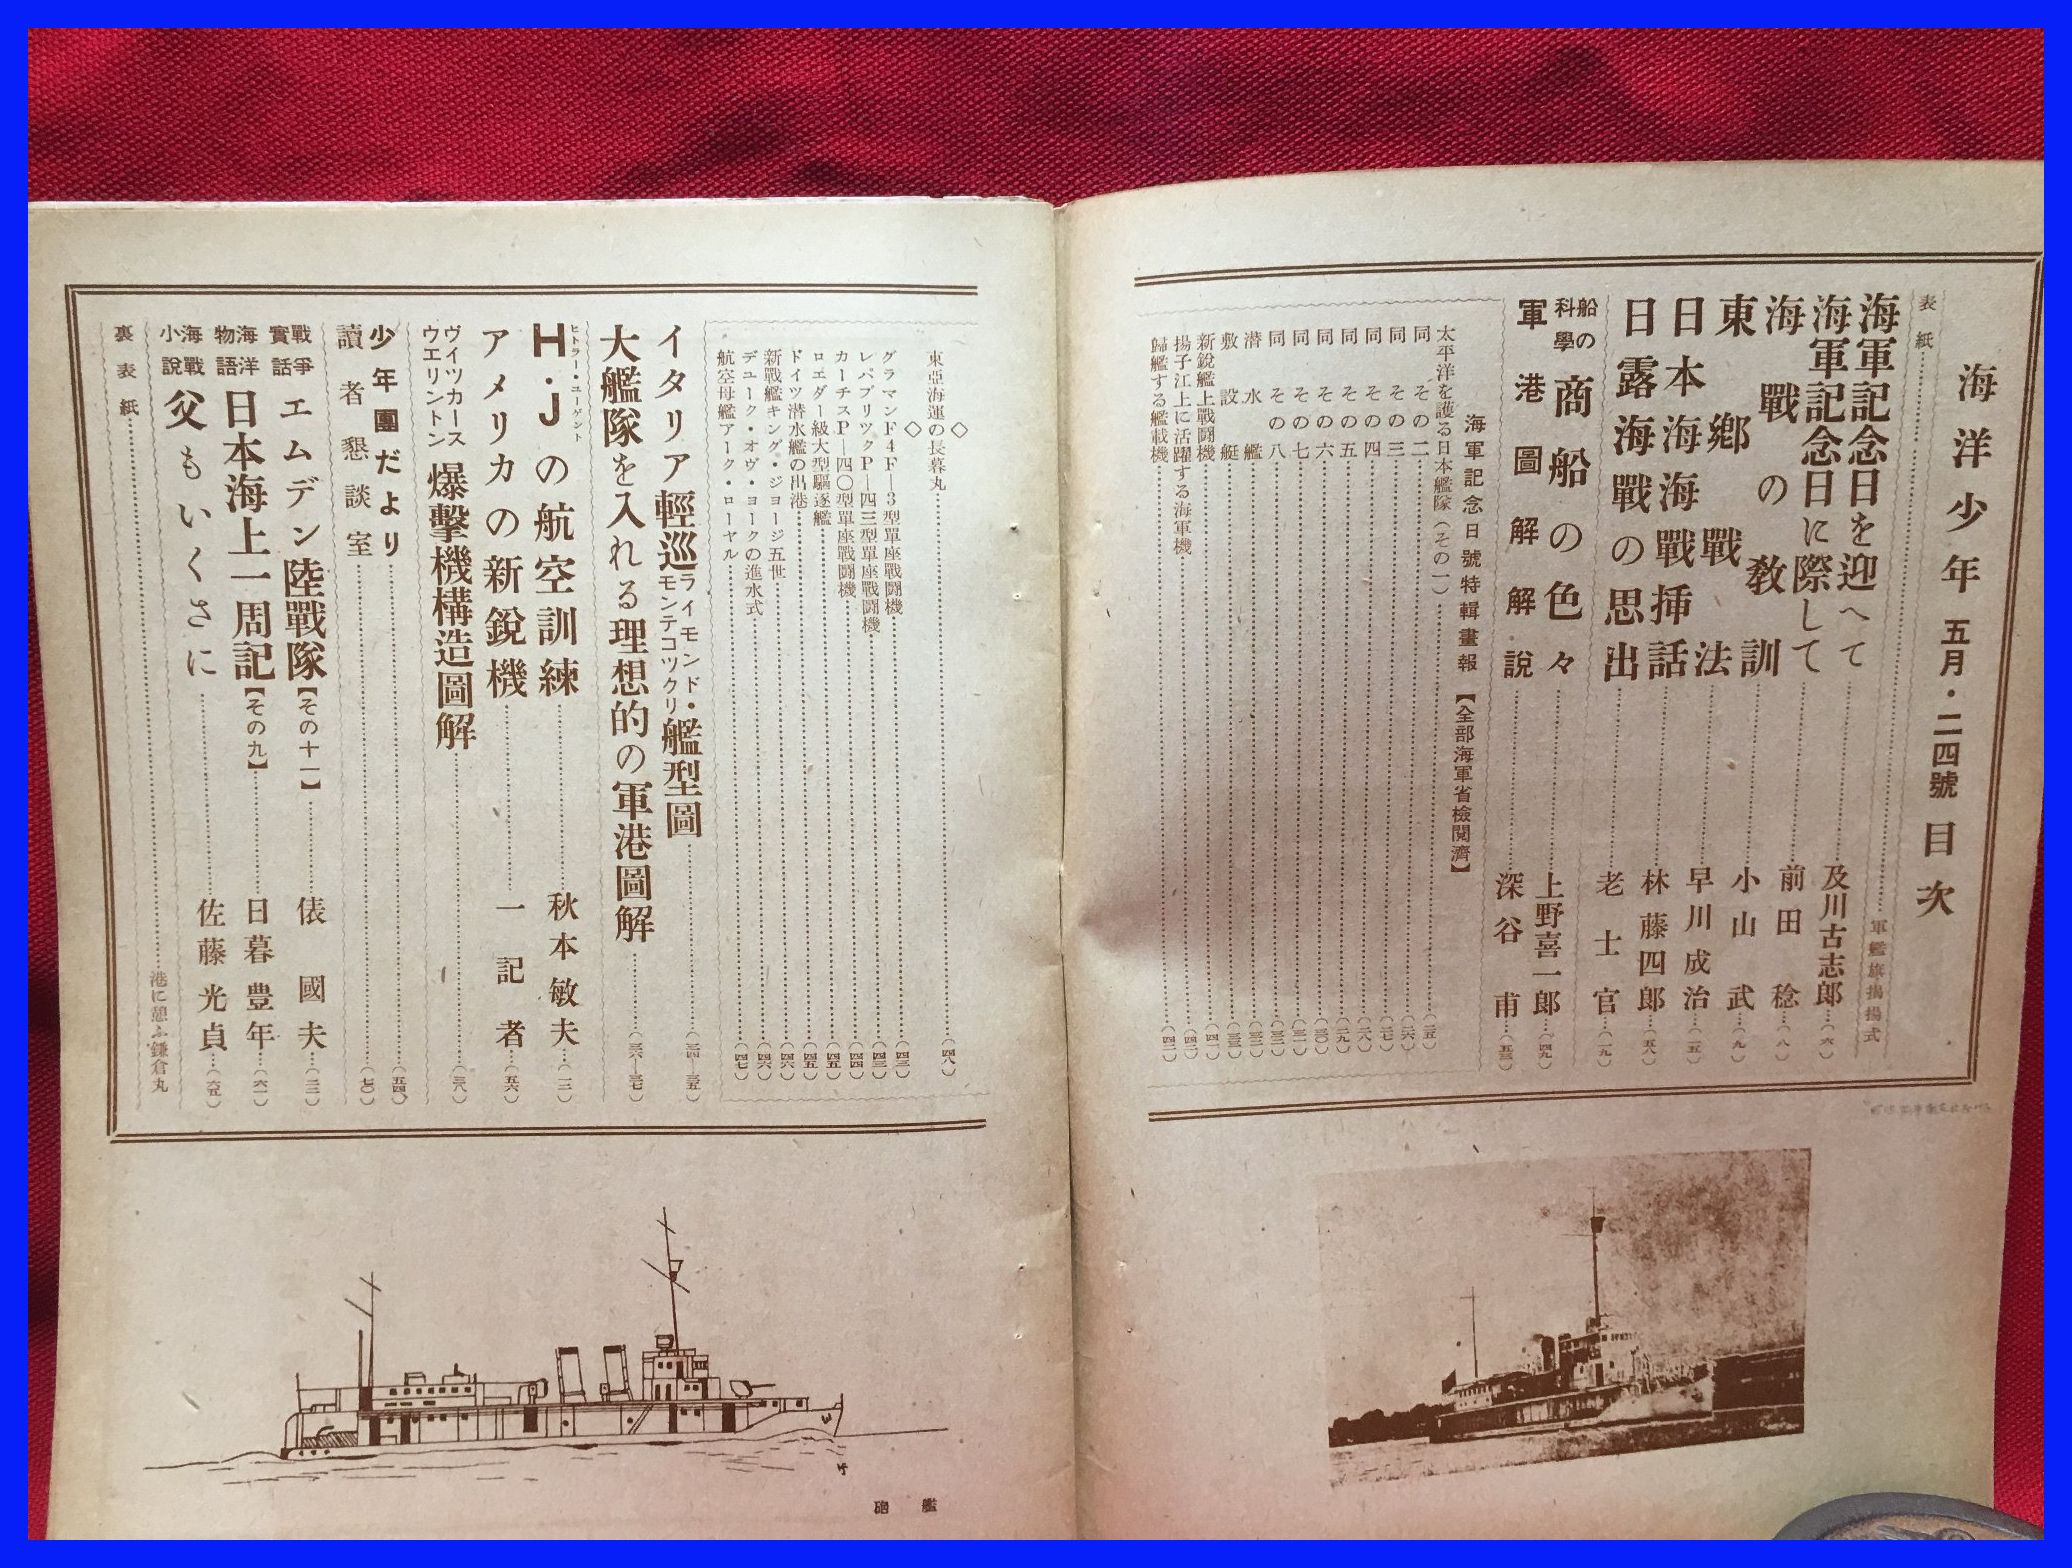 海洋少年 五月・二四號 目次
表紙……軍艦旗揭揚式
海軍記念日を迎へて……及川古志郎…(六)
海軍記念日に際して……前田稔…(八)
海戰の敎訓……小山武…(九)
東鄕戰法……早川成治…(一五)
日本海海戰揷話……林藤四郎…(五八)
日露海戰の思出……老士官…(一九)
船の科學 商船の色々……上野喜一郎…(四九)
軍港圖解解說……深谷甫…(五三)
海軍記念日號特輯畫報【全部海軍省檢閱濟】
太平洋を護る日本艦隊(その一)……(二五)
同 その二……(二六)
同 その三……(二七)
同 その四……(二八)
同 その五……(二九)
同 その六……(三〇)
同 その七……(三一)
同 その八……(三二)
潜水艦……(三三)
敷設艇……(三三)
新銳艦上戰鬪機……(四一)
揚子江上に活躍する海軍機……(四二)
歸艦する艦載機……(四二)
◇
東亞海運の長暮丸……(四八)
◇
グラマンF4F—3型單座戰鬪機……(四三)
レパブリックP—四三型單座戰鬪機……(四三)
カーチスP—四〇型單座戰鬪機……(四四)
ロエダー級大型驅逐艦……(四五)
ドイツ潜水艦の出港……(四五)
新戰艦キング・ジョージ五世……(四六)
デューク・オヴ・ヨークの進水式……(四六)
航空母艦アーク・ローヤル……(四七)
イタリア輕巡ライモンド・モンテコックリ艦型圖……(三四—三五)
大艦隊を入れる理想的の軍港圖解……(三六—三七)
H・J(ヒトラー・ユーゲント)の航空訓練……秋本敏夫…(一二)
アメリカの新銳機……一記者…(五六)
ヴィッカースウエリントン爆擊機構造圖解……(三八)
少年團だより……(五四)
讀者懇談室……(七〇)
戰爭實話 エムデン陸戰隊【その十一】……俵國夫…(二二)
海洋物語 日本海上一周記【その九】……日暮豊年…(六一)
海戰小說 父もいくさに……佐藤光貞…(六五)
裏表紙……港に憩ふ鎌倉丸
砲艦